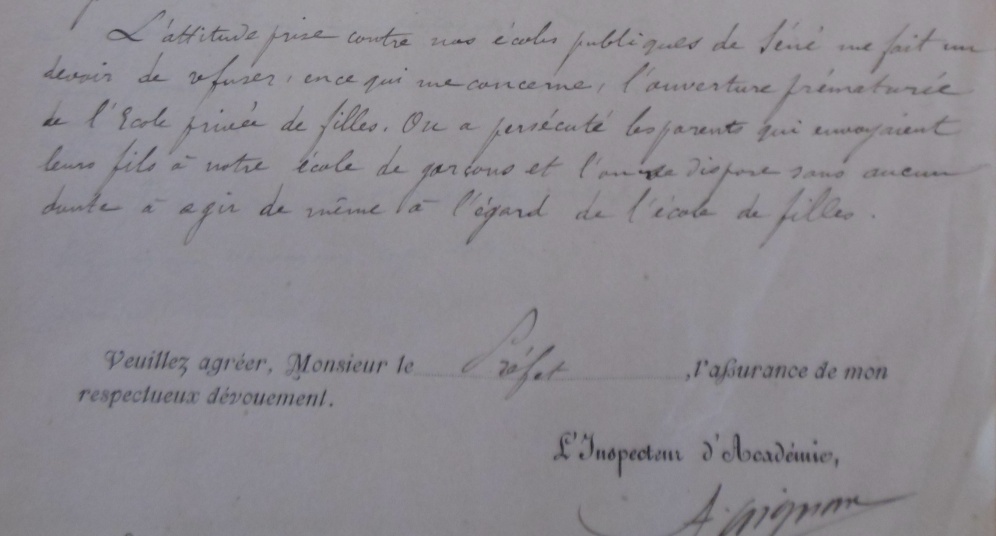 L'attitude prise contre nos écoles publiques de Séné me fait un
devoir de refuser, en ce qui me concerne, l'ouverture prématurée
de l'Ecole privée de filles. On a persécuté les parents qui envoyaient
leurs fils à notre école de garçons et l'on se dispose sans aucun
doute à agir de même à l'égard de l'école de filles.
Veuillez agréer, Monsieur le Préfet, l'assurance de mon
respectueux dévouement.
L'Inspecteur d'Académie,